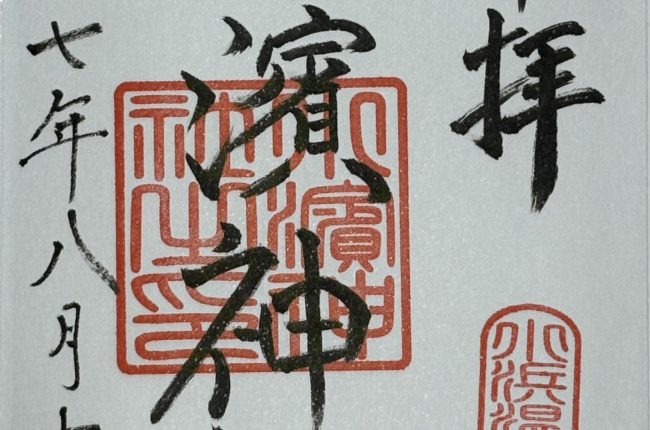 拝
小浜温
濱神
小濱神
社之印
七年八月